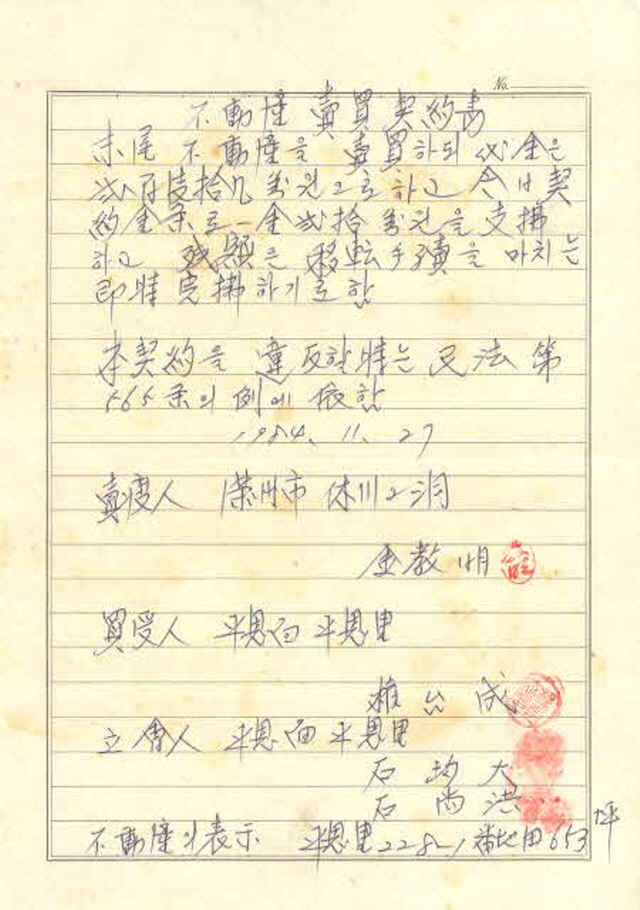 No.
不動産 賣買 契約書
末尾 不動産을 賣買하되 代金은
貳百 拾九萬원으로 하고 今日 契
約金条로 一金貳拾萬원을 支拂
하고 残額은 移転手續을 마치는
即時 完拂하기로 함
本契約을 違反할 時는 民法 第
565条의 例에 依함
1984. 11. 27
賣渡人 榮州市 休川2洞
金敎明
買受人 平恩面 平恩里
権台成
立會人 平恩面 平恩里
石均大
石尚洪
不動産의 表示 平恩里 228-1番地 田 653坪